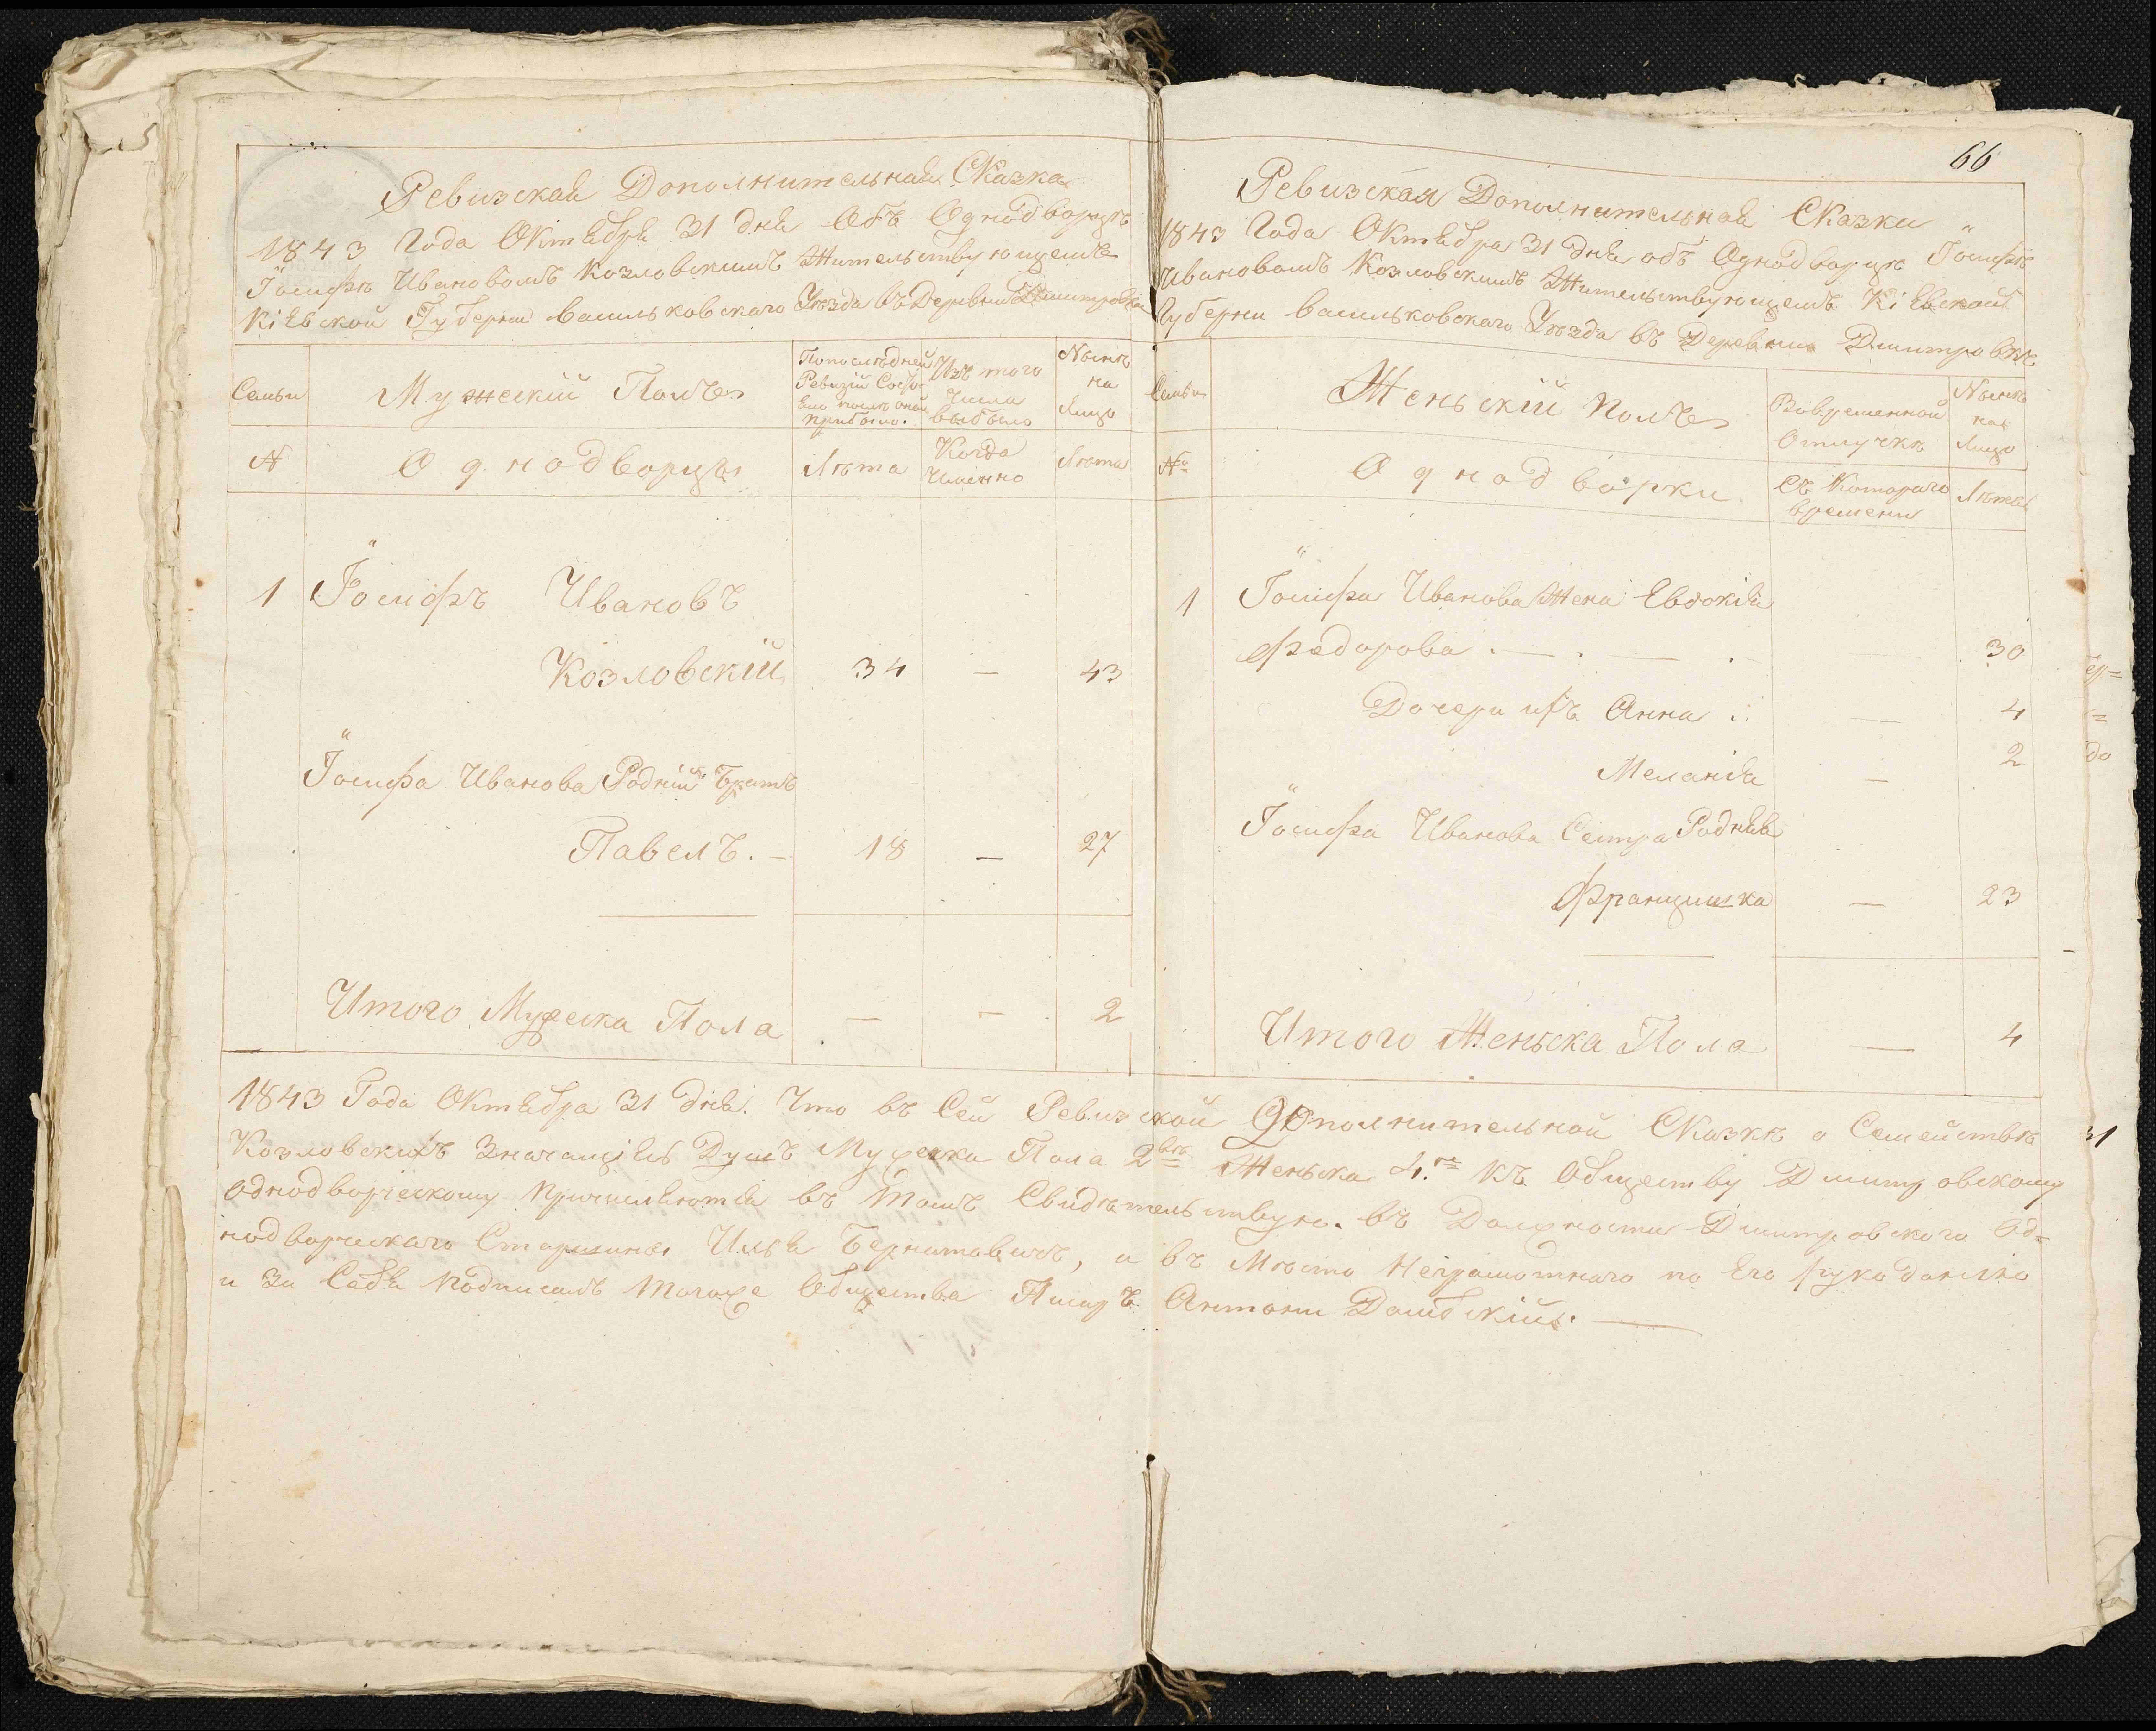 Ревизская Дополнительная Сказка
1843 Года Октября 31 дня Объ Однодворцѣ
Іосифѣ Ивановомъ Козловскимъ Жительствующемъ
Кіевской Губерніи Васильковскаго Уѣзда въ Деревни Дмитровкѣ
Семьи
Мужескій Полъ
По послѣдней
Ревизіи Состо
Или послѣ оной
прибыло.
Изъ того
Числа
выбыло
Нынѣ
на
Лицо
№
Однодворцы
Лѣта
Когда
Именно
Лѣта
1 Іосифъ Ивановъ
Козловскій 34 — 43
Іосифа Иванова Родній Братъ
Павелъ. — 18 — 27
Итого Мужеска Пола — — 2
66
Ревизская Дополнительная Сказки
1843 Года Октября 31 Дня объ Однодворцѣ Іосифѣ
Ивановомъ Козловскимъ Жительствующемъ Кіевской
Губерни Васильковскаго Уѣзда въ Деревни Дмитровкѣ
Семьи
Женьскій полъ
Вовременной
Отлучкѣ
Нынѣ
на
Лицо
№
Однодворки
Съ Котораго
времени
Лѣта
1 Іосифа Иванова Жена Евдокія
Федорова . — . — . — 30
Дочери ихъ Анна — 4
Меланія — 2
Іосифа Иванова Сестра Родная
Францишка — 23
Итого Женьска Пола — 4
1843 Года Октября 31 дня. Что въ Сей Ревизской Дополнительной Сказкѣ о Семействѣ
Козловскихъ Значащіясь Душъ Мужеска Пола 2 Женьска 4. Къ Обществу Дмитровскому
Однодворческому Причисляются въ томъ Свидѣтельствую. въ Должности Дмитровского Од=
нодворческаго Старшина Илья Бернатовичъ, а въ Мѣсто Неграмотнаго по Его рукоданію
и За Себя подписалъ тогоже Общества Писаръ Антони Домбскій. —
ер=
=
до
31